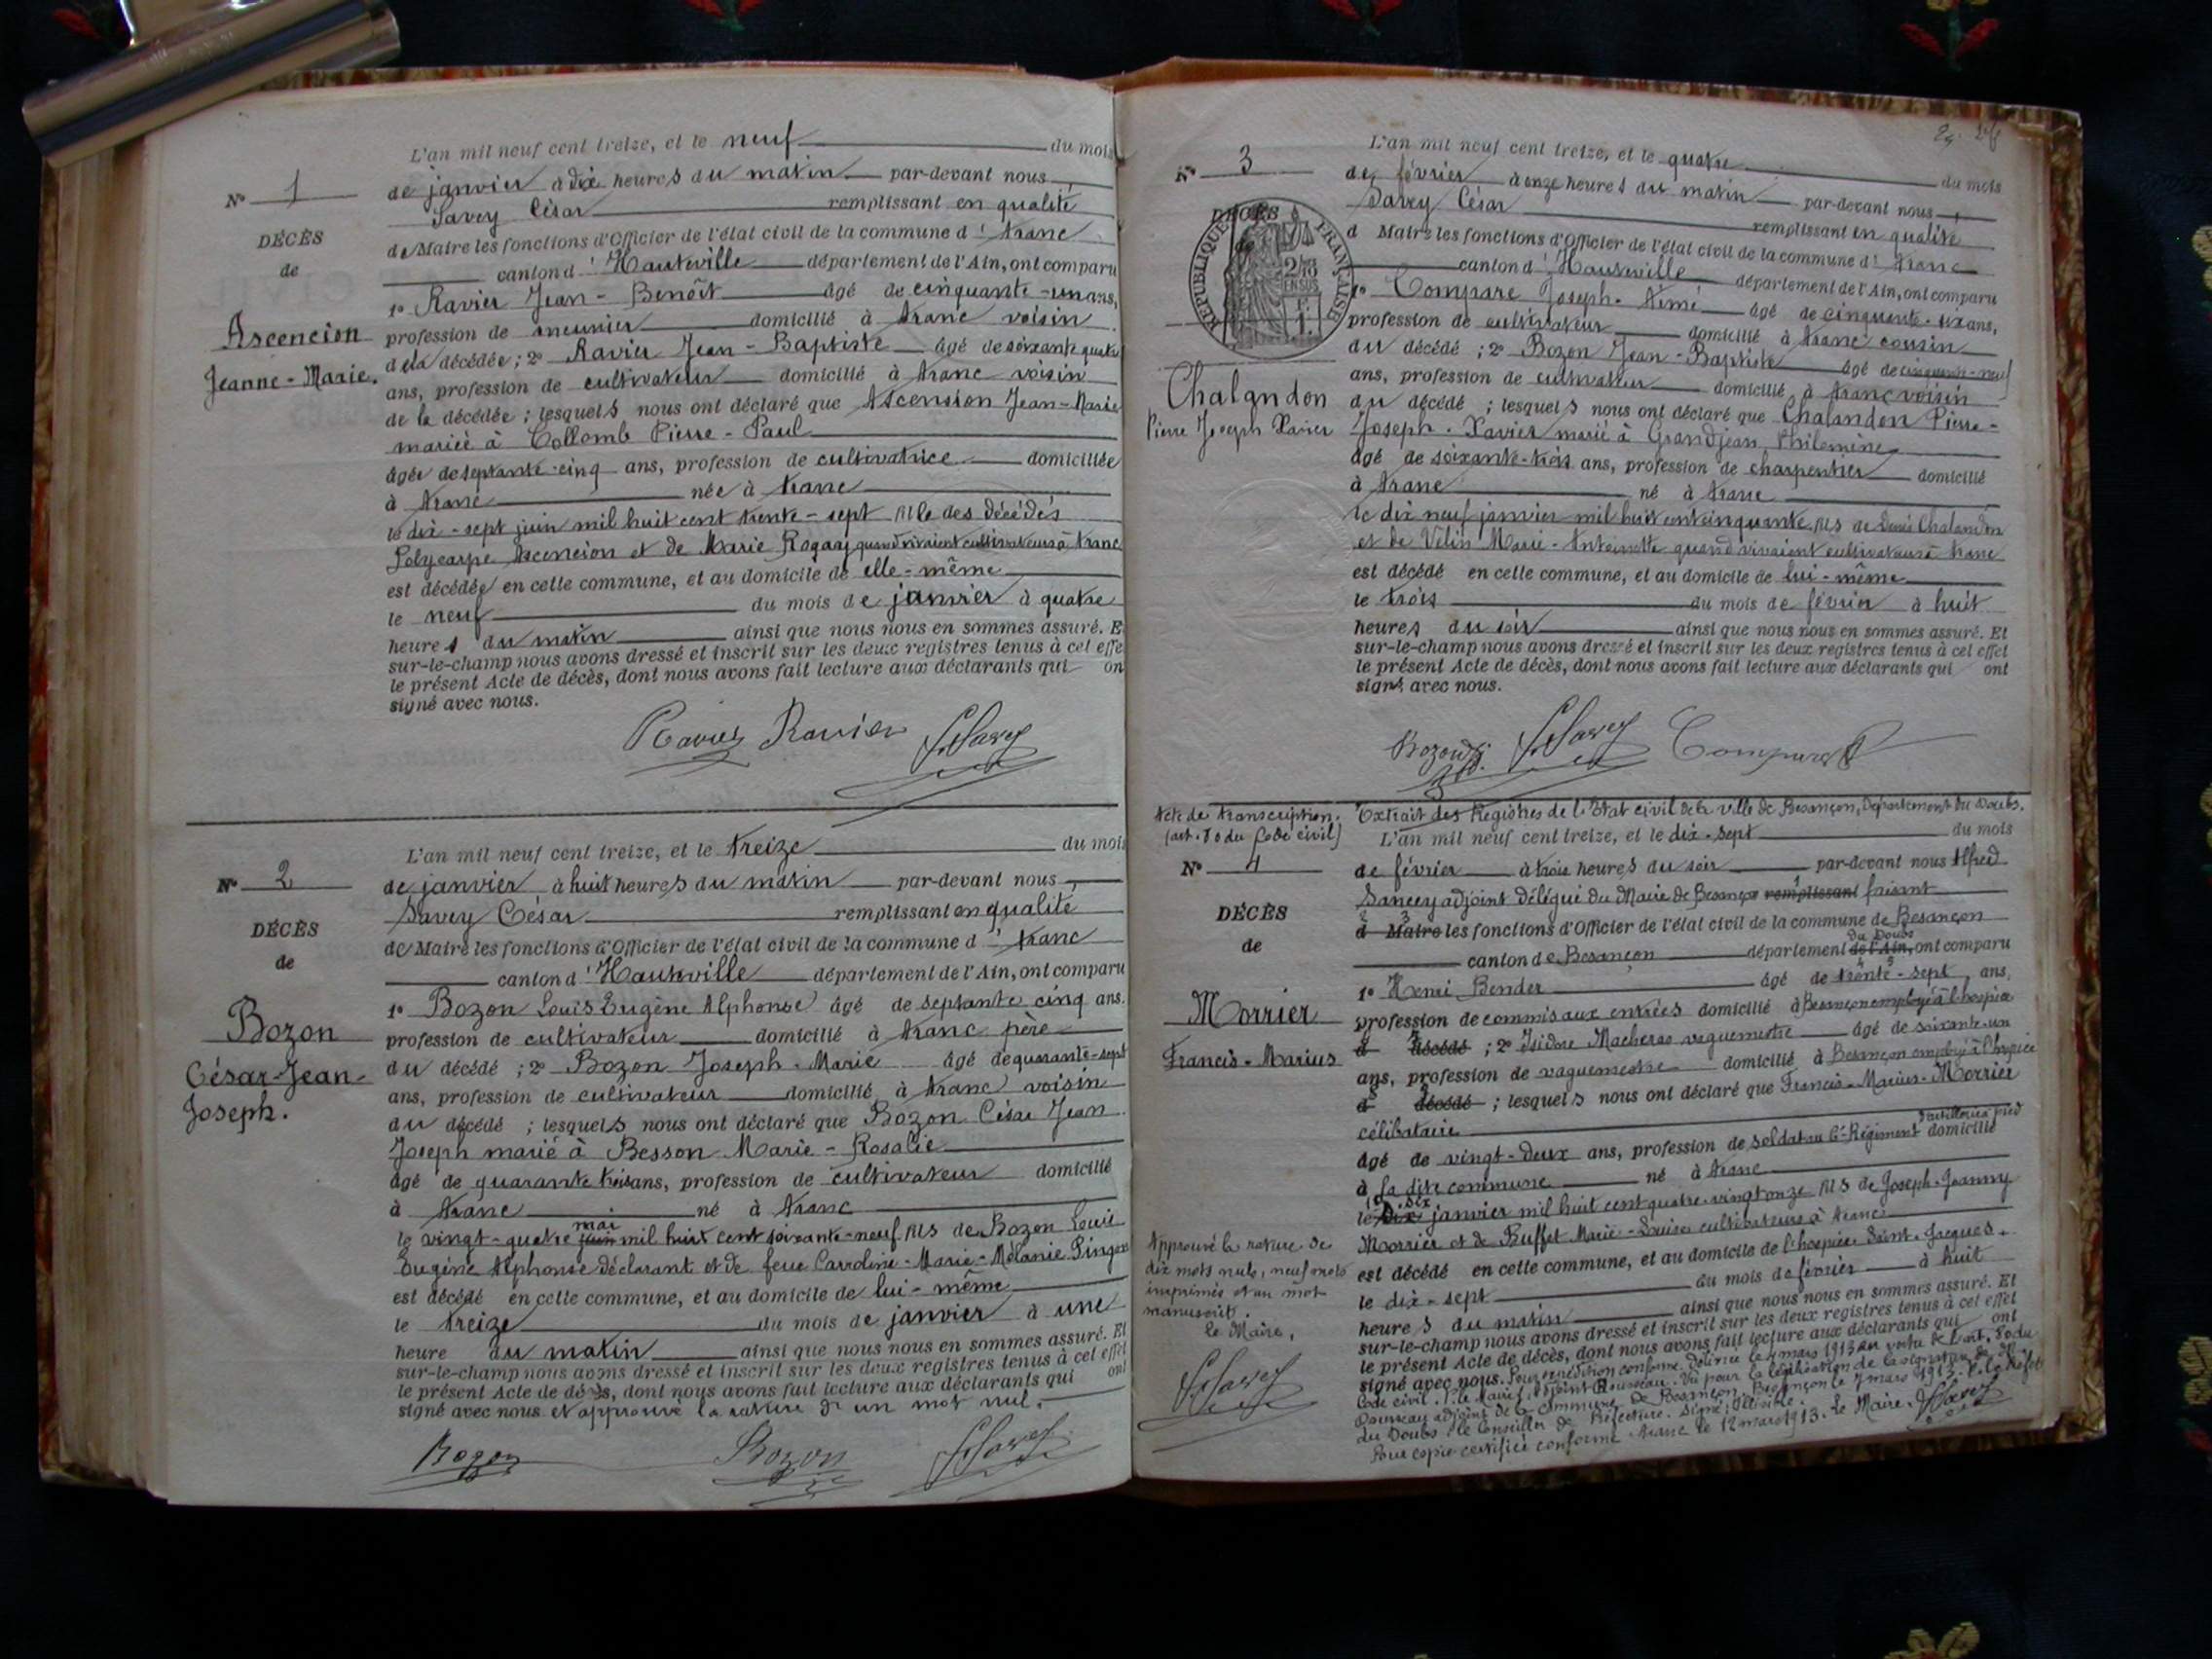 L'an mil neuf cent treize, et le neuf du mois
N° 1
de janvier à dix heures du matin par-devant nous
Savey César remplissant en qualité
DÉCÈS
de Maire les fonctions d'Officier de l'état civil de la commune d' Aranc
de
canton d' Hauteville département de l'Ain, ont comparu
1° Ravier Jean-Benoît âgé de cinquante-un ans,
Ascencion
profession de meunier domicilié à Aranc voisin
de la décédée ; 2° Ravier Jean-Baptiste âgé de soixante quatre
Jeanne-Marie.
ans, profession de cultivateur domicilié à Aranc voisin
de la décédée ; lesquels nous ont déclaré que Ascension Jean-Marie
mariée à Collomb Pierre-Paul
âgée de septante-cinq ans, profession de cultivatrice domiciliée
à Aranc née à Aranc
le dix-sept juin mil huit cent trente-sept fille des décédés
Polycarpe Ascencion et de Marie quand vivaient cultivateurs à Aranc
est décédée en cette commune, et au domicile de elle-même
le neuf du mois de janvier à quatre
heures du matin ainsi que nous nous en sommes assuré. E
sur-le-champ nous avons dressé et inscrit sur les deux registres tenus à cet effe
le présent Acte de décès, dont nous avons fait lecture aux déclarants qui on
signé avec nous.
Ravier Ravier Savey
L'an mil neuf cent treize, et le treize du mois
N° 2
de janvier à huit heures du matin par-devant nous
Savey César remplissant en qualité
DÉCÈS
de Maire les fonctions d'Officier de l'état civil de la commune d' Aranc
de
canton d' Hauteville département de l'Ain, ont comparu
1° Bozon Louis Eugène Alphonse âgé de septante cinq ans.
Bozon
profession de cultivateur domicilié à Aranc père
du décédé ; 2° Bozon Joseph-Marie âgé de quarante-sept
César-Jean-
ans, profession de cultivateur domicilié à Aranc voisin
Joseph.
du décédé ; lesquels nous ont déclaré que Bozon César Jean
Joseph marié à Besson Marie-Rosalie
âgé de quarante trois ans, profession de cultivateur domicilié
à Aranc né à Aranc
mai
le vingt-quatre juin mil huit cent soixante-neuf fils de Bozon Louis
Eugène Alphonse déclarant et de feue Carroline-Marie-Mélanie
est décédé en cette commune, et au domicile de lui-même
le treize du mois de janvier à une
heure du matin ainsi que nous nous en sommes assuré. Et
sur-le-champ nous avons dressé et inscrit sur les deux registres tenus à cet effet
le présent Acte de décès, dont nous avons fait lecture aux déclarants qui ont
signé avec nous et approuvé la rature d'un mot nul.
Bozon Bozon Savey
L'an mil neuf cent treize, et le quatre du mois
N° 3
de février à onze heures du matin par-devant nous
Savey César remplissant en qualité
DÉCÈS
RÉPUBLIQUE FRANÇAISE
d Maire les fonctions d'Officier de l'état civil de la commune d' Aranc
canton d' Hauteville département de l'Ain, ont comparu
1° Compare Joseph-Aimé âgé de cinquante-six ans,
profession de cultivateur domicilié à Aranc cousin
du décédé ; 2° Bozon Jean-Baptiste âgé de cinquante-neuf
Chalandon
ans, profession de cultivateur domicilié à Aranc voisin
du décédé ; lesquels nous ont déclaré que Chalandon Pierre-
Pierre Joseph Xavier
Joseph-Xavier marié à Grandjean Philomène
âgé de soixante-trois ans, profession de charpentier domicilié
à Aranc né à Aranc
le dix neuf janvier mil huit cent cinquante fils de Denis Chalandon
et de Velin Marie-Antoinette quand vivaient cultivateurs à Aranc
est décédé en cette commune, et au domicile de lui-même
le trois du mois de février à huit
heures du soir ainsi que nous nous en sommes assuré. Et
sur-le-champ nous avons dressé et inscrit sur les deux registres tenus à cet effet
le présent Acte de décès, dont nous avons fait lecture aux déclarants qui ont
signé avec nous.
Bozon Savey Compare
Acte de transcription.
(art. 80 du Code civil)
Extrait des Registres de l'Etat civil de la ville de Besançon, Département du Doubs.
L'an mil neuf cent treize, et le dix-sept du mois
N° 4
de février à trois heures du soir par-devant nous Alfred
Sancey adjoint délégué du Maire de Besançon remplissant faisant
DÉCÈS
d Maire les fonctions d'Officier de l'état civil de la commune de Besançon
du Doubs
de
canton de Besançon département de l'Ain, ont comparu
1° Henri Bender âgé de trente-sept ans,
Morrier
profession de commis aux entrées domicilié à Besançon employé à l'hospice
d décédé ; 2° Isidore vaguemestre âgé de soixante-un
Francis-Marius
ans, profession de vaguemestre domicilié à Besançon employé à l'hospice
d décédé ; lesquels nous ont déclaré que Francis-Marius-Morrier
célibataire
d'artillerie à pied
âgé de vingt-deux ans, profession de soldat au 6e Régiment domicilié
à la dite commune né à Aranc
six
le dix janvier mil huit cent quatre-vingt onze fils de Joseph-Joanny
Morrier et de Buffet Marie-Louise cultivateurs à Aranc
est décédé en cette commune, et au domicile de l'hospice Saint-Jacques.
le dix-sept du mois de février à huit
heures du matin ainsi que nous nous en sommes assuré. Et
sur-le-champ nous avons dressé et inscrit sur les deux registres tenus à cet effet
le présent Acte de décès, dont nous avons fait lecture aux déclarants qui ont
signé avec nous. Pour expédition conforme délivrée le 4 mars 1913 en vertu de l'art. 80 du
Code civil. P. le Maire, l'adjoint Rousseau. Vu pour la légalisation de la signature de M.
Rousseau adjoint de la commune de Besançon. Besançon le 7 mars 1913. P. le Préfet
du Doubs, le Conseiller de Préfecture. Signé: Illisible.
Pour copie certifiée conforme. Aranc le 12 mars 1913. Le Maire. Savey
Approuvé la rature de
dix mots nuls, neuf mots
imprimés et un mot
manuscrit.
Le Maire,
Savey